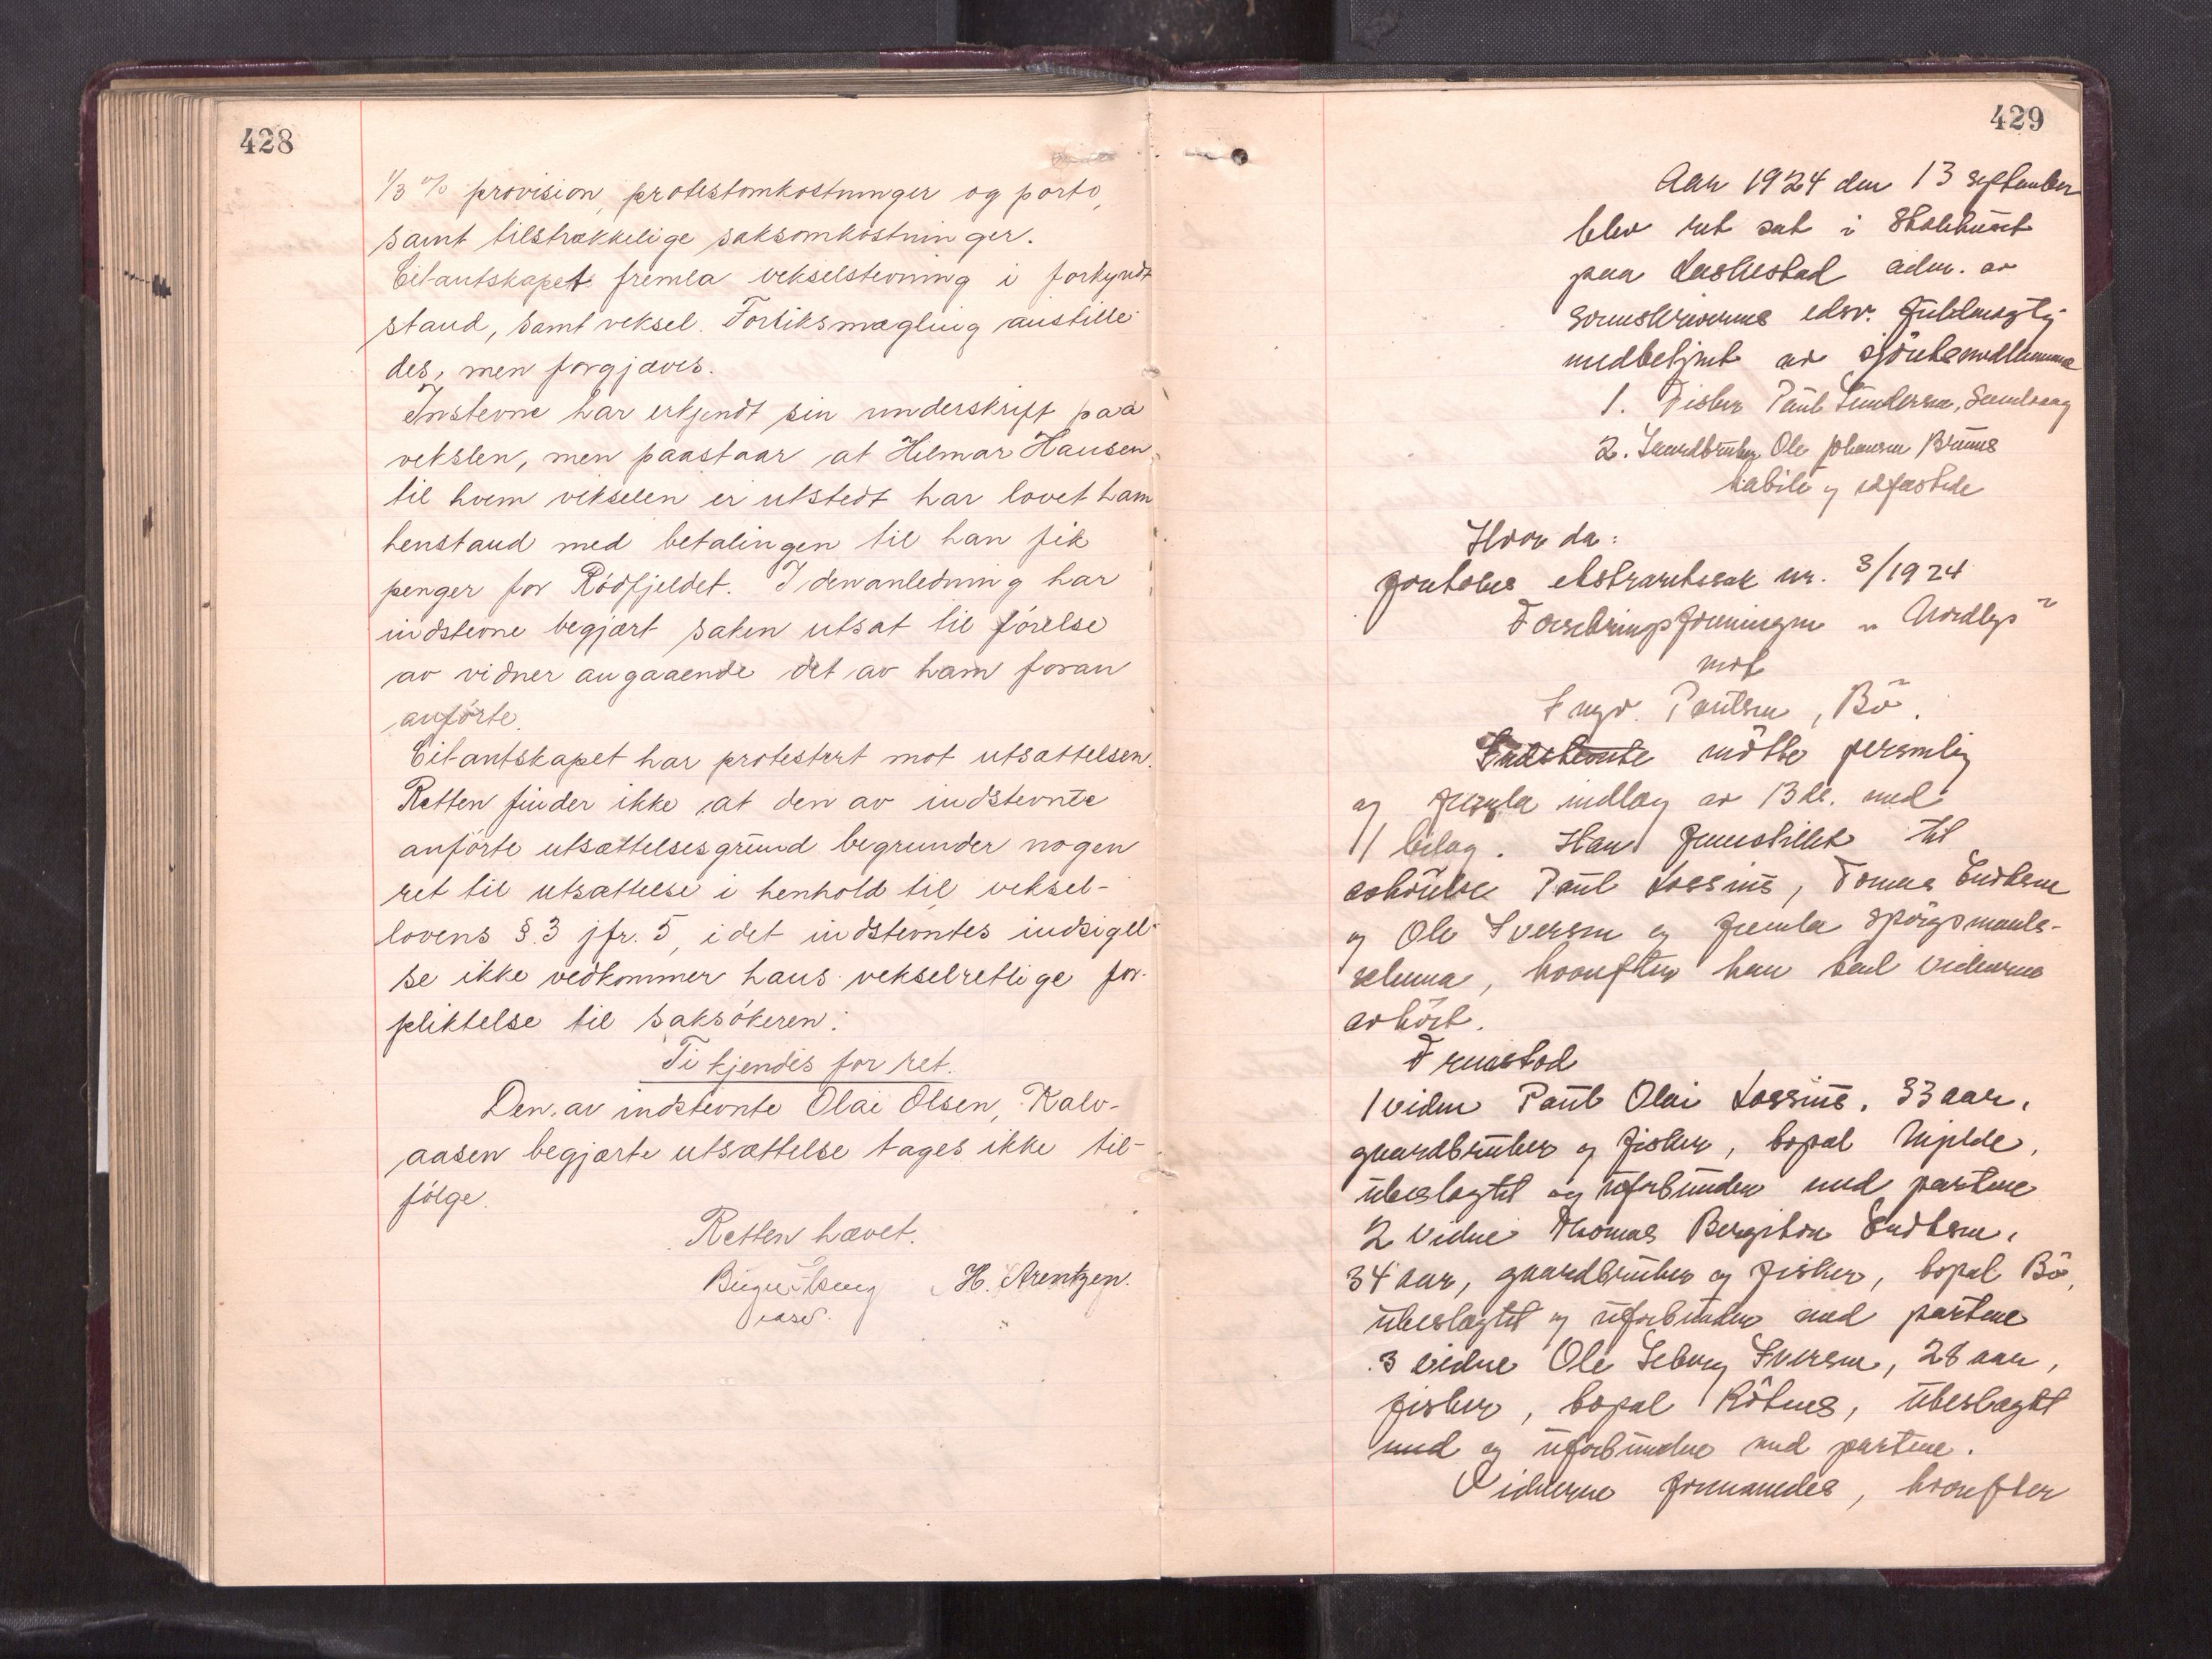 428
1/3 % provision, protestomkostninger og porto,
samt tilstrækkelige saksomkostninger.
Citantskapet fremla vekselstevning i forkyndt
stand, samt veksel. Forliksmægling anstille-
des, men forgjæves.
Instevne har erkjendt sin underskrift paa
vekslen, men paastaar at Hilmar Hansen
til hvem vekselen er utstedt har lovet ham
henstand med betalingen til han fik
penger for Rödfjeldet. I den anledning har
indstevne begjært saken utsat til förelse
av vidner angaaende det av ham foran
anförte.
Citantskapet har protestert mot utsættelsen.
Retten finder ikke at den av indstevnte
anförte utsættelsesgrund begrunder nogen
ret til utsættelse i henhold til veksel-
lovens §.3 jfr. 5, idet indstevntes indsigel-
se ikke vedkommer hans vekselretlige for-
pliktelse til saksökeren:
Ti kjendes for ret.
Den av indstevnte Olai Olsen, Kalv-
aasen begjærte utsættelse tages ikke til-
fölge.
Retten hævet.
H. Arentzen.
429
Aar 1924 den 13 september
blev ret sat i
paa adm. av
sorenskriverens edsv. fuldmægtig
medbetjent av sjöretsmedlemmene
1. Fisker Paul
2. Gaardbruker Ole Johansen
habile og edfæstede
Hvor da:
Foretokes ekstraretssak nr. 3/1924
Forsikringsforeningen „Nordlys"
mot
Ingv. Paulsen, Bö.
Indstevnte mötte personlig
og fremla indlæg av 13 ds. med
1 bilag. Han fremstillet til
avhörelse Paul Lossius, Tomas Endresen
og Ole Iversen og fremla spörgsmaals-
skema, hvorefter han bad vidnerne
avhört.
Fremstod
1 vidne Paul Olai Lossius, 33 aar,
gaardbruker og fisker, bopæl
ubeslægtet og uforbunden med partene
2 vidne Thomas Bergiton Endresen,
34 aar, gaardbruker og fisker, bopæl Bö,
ubeslægtet og uforbunden med partene
3 vidne Ole Iversen, 28 aar,
fisker, bopæl, ubeslægtet
med og uforbunden med partene.
Vidnerne formanedes, hvorefter